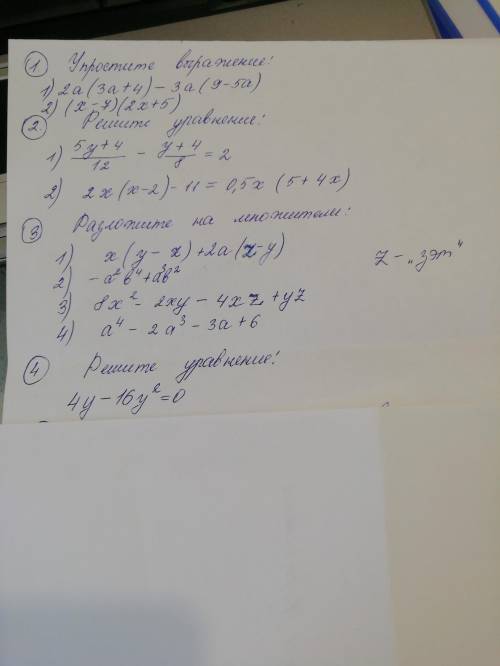 1. Упростите выражение:
1) 2a(3a+4) – 3a(9-5a)
2) (x-7)(2x+5)
2. Решите уравнение:
1) (5y+4)/12 – (y+4)/8 = 2
2) 2x(x-2) - 11 = 0,5x (5+4x)
3 Разложите на множители:
1) x(y-z)+2a(z-y)
2) -a²b⁴+a³b² z - „зэт"
3) 8x² - 2xy - 4xz + yz
4) a⁴ - 2a³ - 3a + 6
4 Решите уравнение:
4y - 16y² = 0